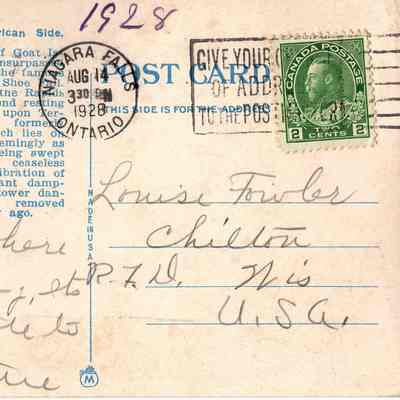 1928
rican Side.
of Goat Is-
nsurpass-
the famous
Shoe Fall.
the Rapids
und resting
upon Ter-
former
ich lies on
eemingly as
eing swept
ceaseless
ibration of
tant damp-
tower dan-
removed
ago.
NIAGARA FALLS
AUG 14
3 30 PM
1928
ONTARIO
POST CARD
THIS SIDE IS FOR THE ADDRESS
GIVE YOUR
OF ADDR
TO THE POS
CANADA POSTAGE
2 2
CENTS
MADE IN USA
Louise Fowler
Chilton
R.F.D. Wis
U.S.A.
here
to
to
M